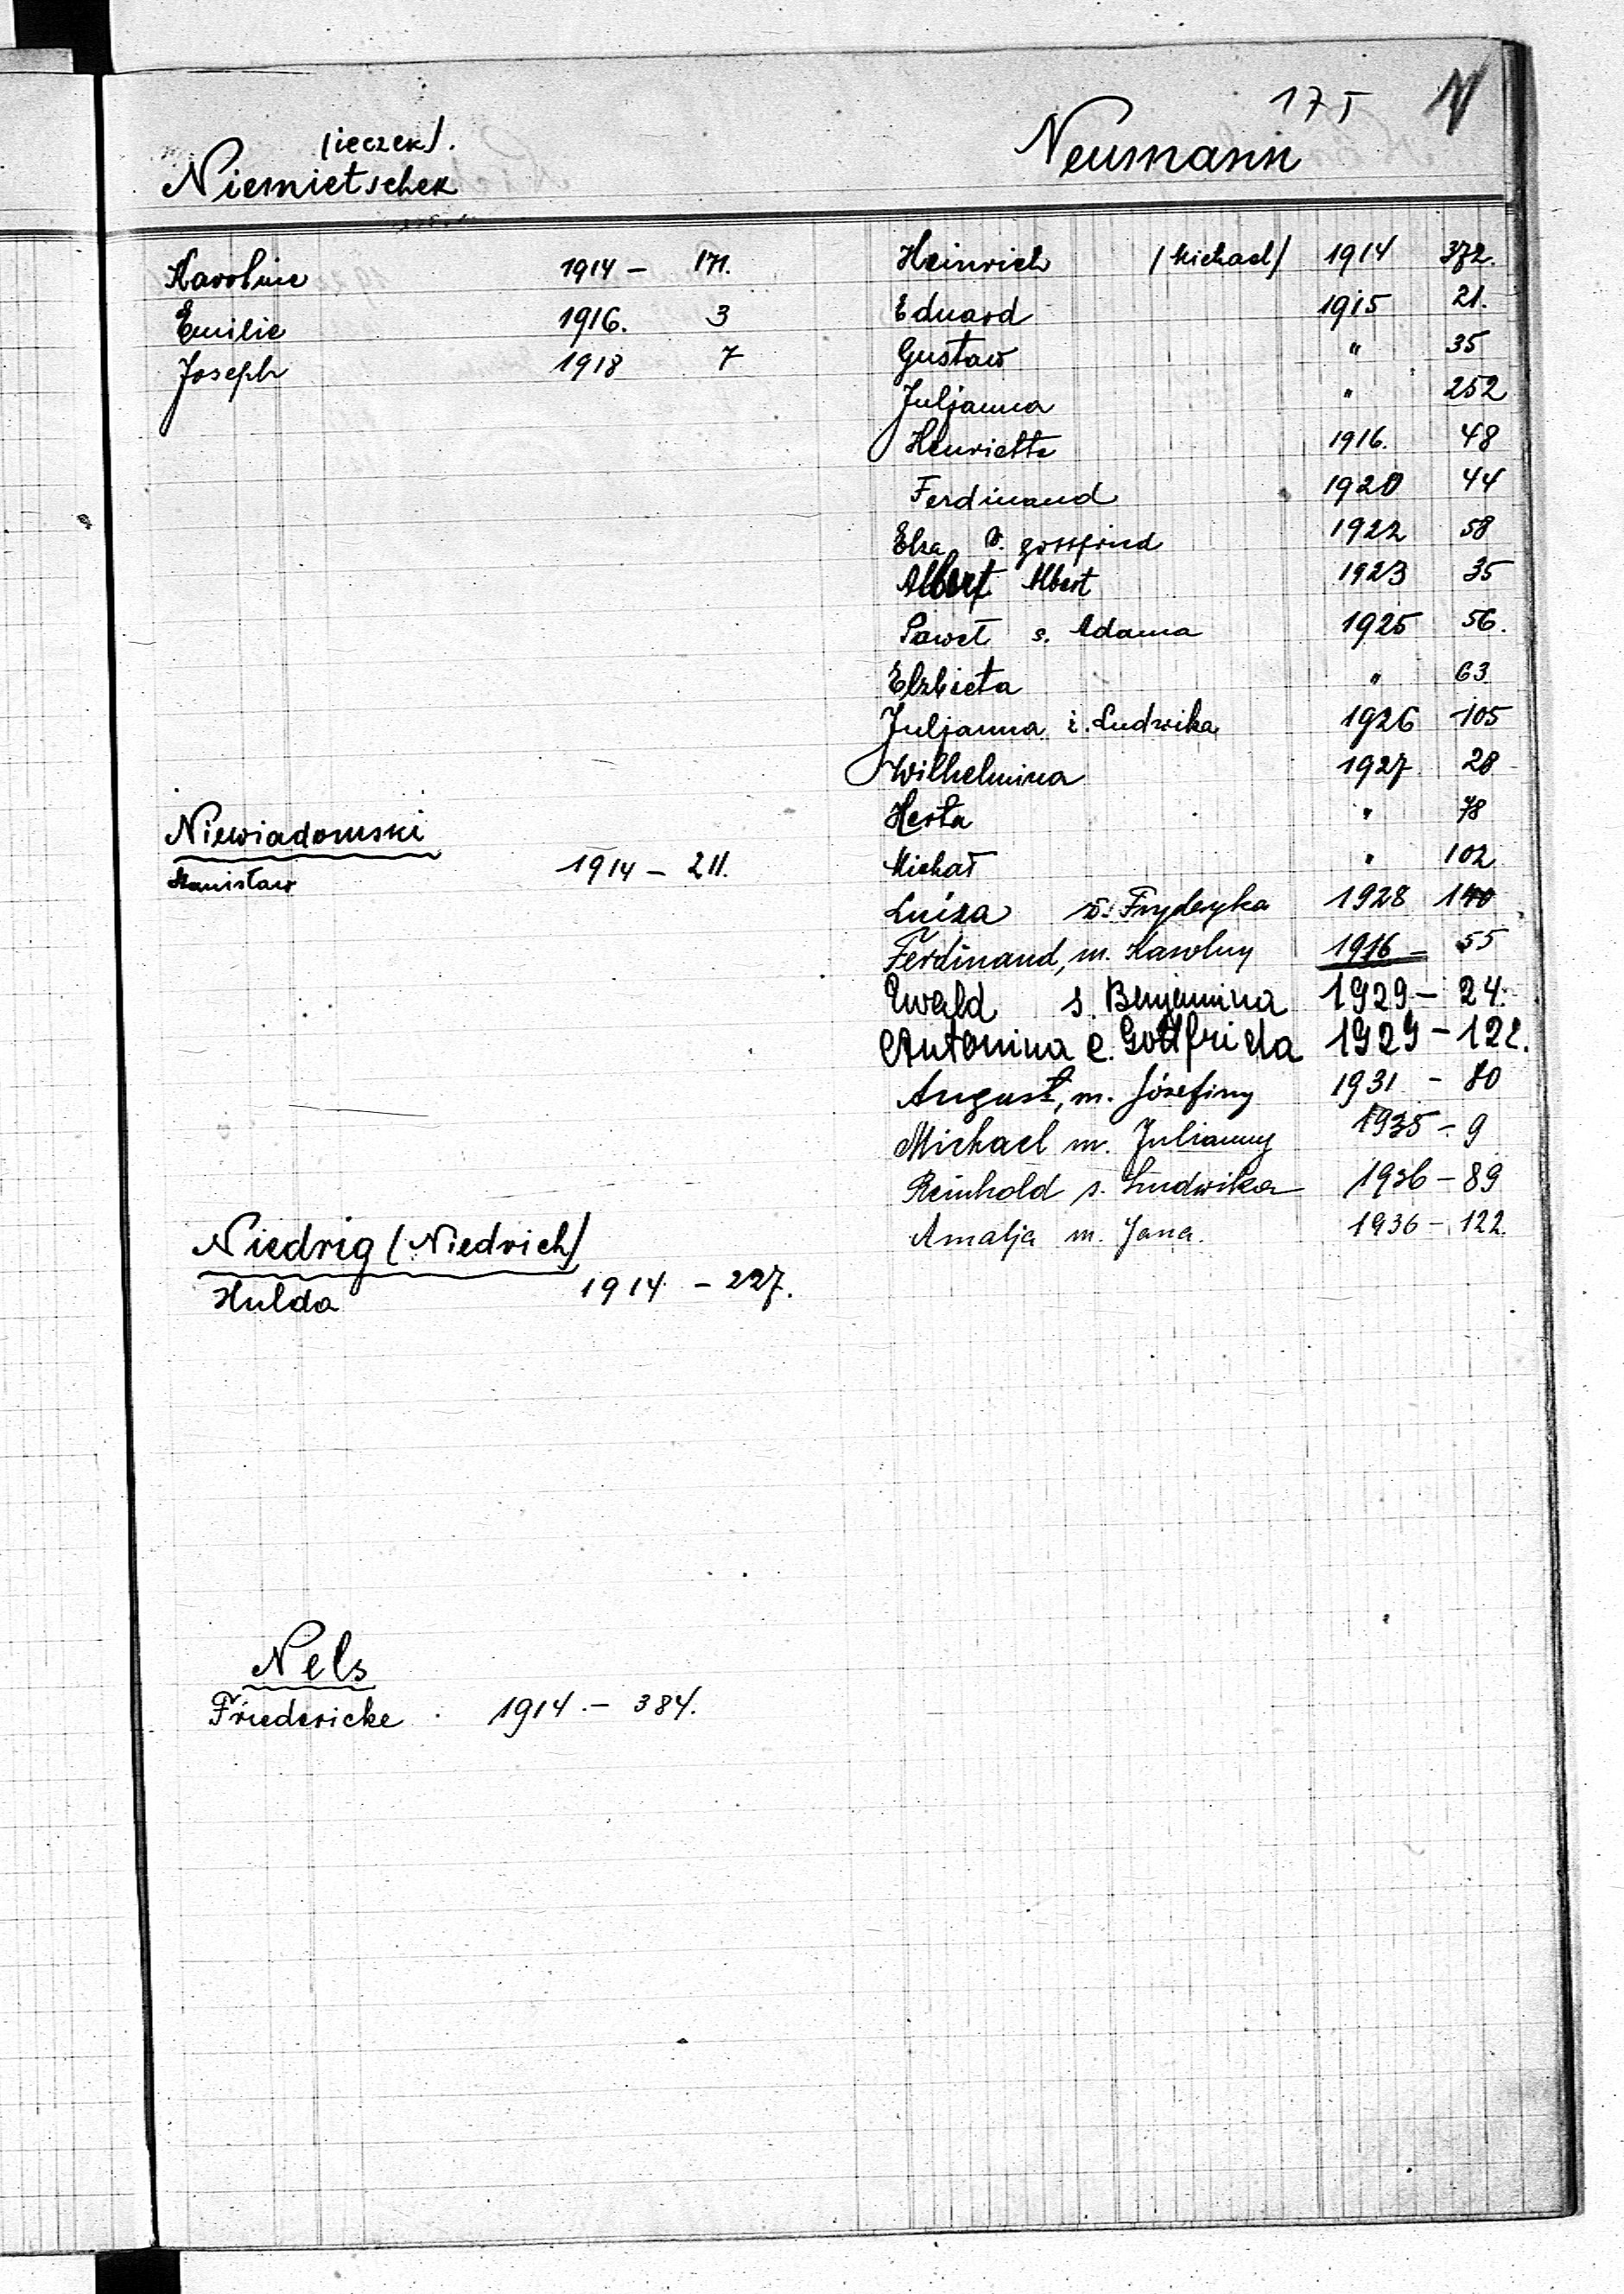 175 N
(ieczek).
Niemietschek
Karoline 1914 - 171.
Emilie 1916. 3
Joseph 1918 7
Niewiadomski
Stanisław 1914 - 211.
Niedrig (Niedrich)
Hulda 1914 - 227.
Nels
Friedericke 1914. - 384.
Neumann
Heinrich (Michael) 1914 372.
Eduard 1915 21.
Gustaw " 35
Juljanna " 252
Henriette 1916. 48
Ferdinand 1920 44
Elsa gottfried 1922 58
Albert Albert 1923 35
Paweł s. Adama 1925 56.
Elżbieta " 63
Juljanna ż. Ludwika 1926 -105
Wilhelmina 1927 28
Herta " 78
Michał " 102
Luiza ż. Fryderyka 1928 140
Ferdinand, m. Karoliny 1916 - 55
Ewald s. Benjamina 1929 - 24.
Antonina c. Gottfrieda 1929 - 122.
August, m. Józefiny 1931 - 80
Michael m. Julianny 1935 - 9
Reinhold s. Ludwika 1936 - 89
Amalja m. Jana. 1936 - 122.